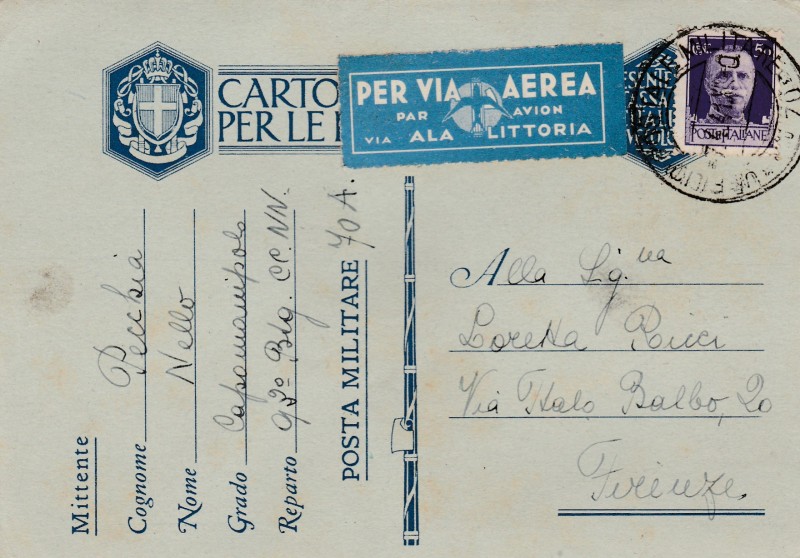 CARTO
PER LE
PER VIA AEREA
PAR AVION
VIA ALA LITTORIA
50
POSTE ITALIANE
Mittente
Cognome Pecchia
Nome Nello
Grado Capomanipolo
Reparto 93º Btg. CC. NN.
POSTA MILITARE 70 A.
Alla Sig.na
Loretta Ricci
Via Italo Balbo, 20
Firenze